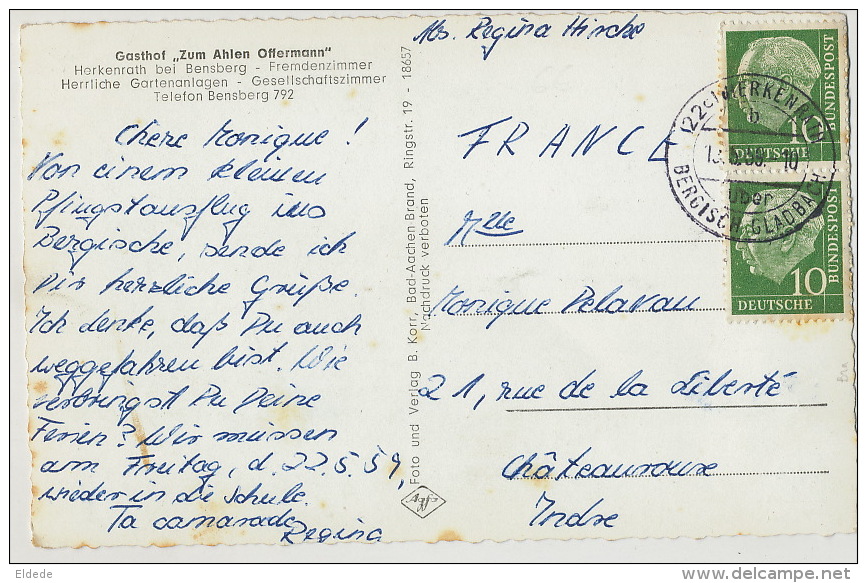 Gasthof „Zum Ahlen Offermann"
Herkenrath bei Bensberg - Fremdenzimmer
Herrliche Gartenanlagen - Gesellschaftszimmer
Telefon Bensberg 792
Chere Monique!
Von einem kleinen
Pfingstausflug ins
Bergische, sende ich
Dir herzliche Grüße.
Ich denke, daß Du auch
weggefahren bist. Wie
verbringst Du Deine
Ferien? Wir müssen
am Freitag, d. 22.5.59,
wieder in die Schule.
Ta camarade
Regina
Foto und Verlag B. Korr, Bad-Aachen Brand, Ringstr. 19 - 18657
Nachdruck verboten
Agfa
Abs. Regina Hircke
FRANCE
Mlle
Monique Delavau
21, rue de la Liberté
Châteauroux
Indre
10
DEUTSCHE
BUNDESPOST
10
DEUTSCHE
BUNDESPOST
(22c) HERKENRATH
über
BERGISCH GLADBACH
Eldede
http://www.delcampe.net